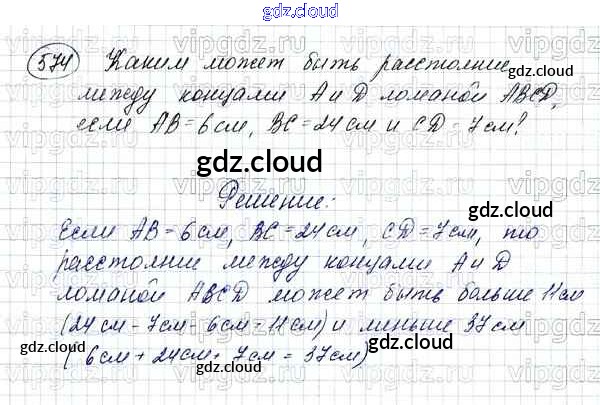 gdz.cloud
574 Каким может быть расстояние
gdz.cloud
между концами А и D ломаной ABCD,
если АВ = 6 см, ВС = 24 см и CD = 7 см?
gdz.cloud
gdz.cloud
Решение:
gdz.cloud
Если АВ = 6 см, ВС = 24 см, CD = 7 см, то
расстояние между концами А и D
ломаной ABCD может быть больше 11 см
(24 см - 7 см - 6 см = 11 см) и меньше 37 см
gdz.cloud
gdz.cloud
(6 см + 24 см + 7 см = 37 см)